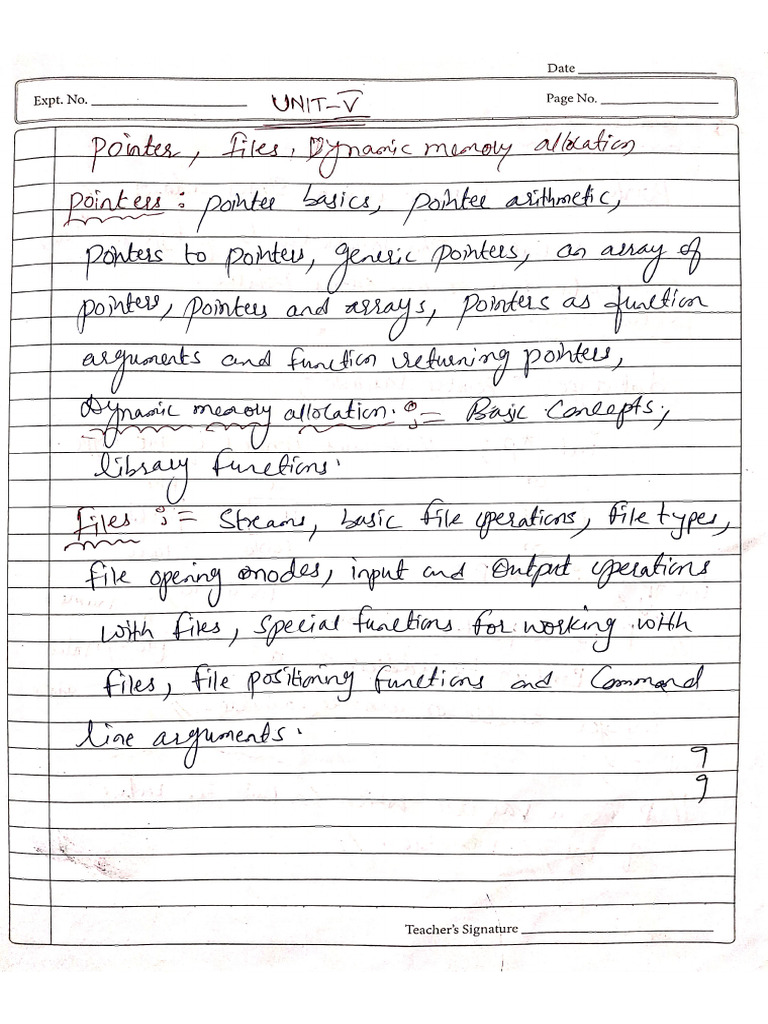 Date
Expt. No. UNIT-V Page No.
Pointer, files, Dynamic memory allocation
Pointers : pointer basics, pointer arithmetic,
pointers to pointers, generic pointers, an array of
pointers, pointers and arrays, pointers as function
arguments and function returning pointers,
Dynamic memory allocation. := Basic Concepts,
library functions.
Files := Streams, basic file operations, file types,
file opening modes, input and output operations
with files, special functions for working with
files, file positioning functions and Command
line arguments.
9
9
Teacher's Signature